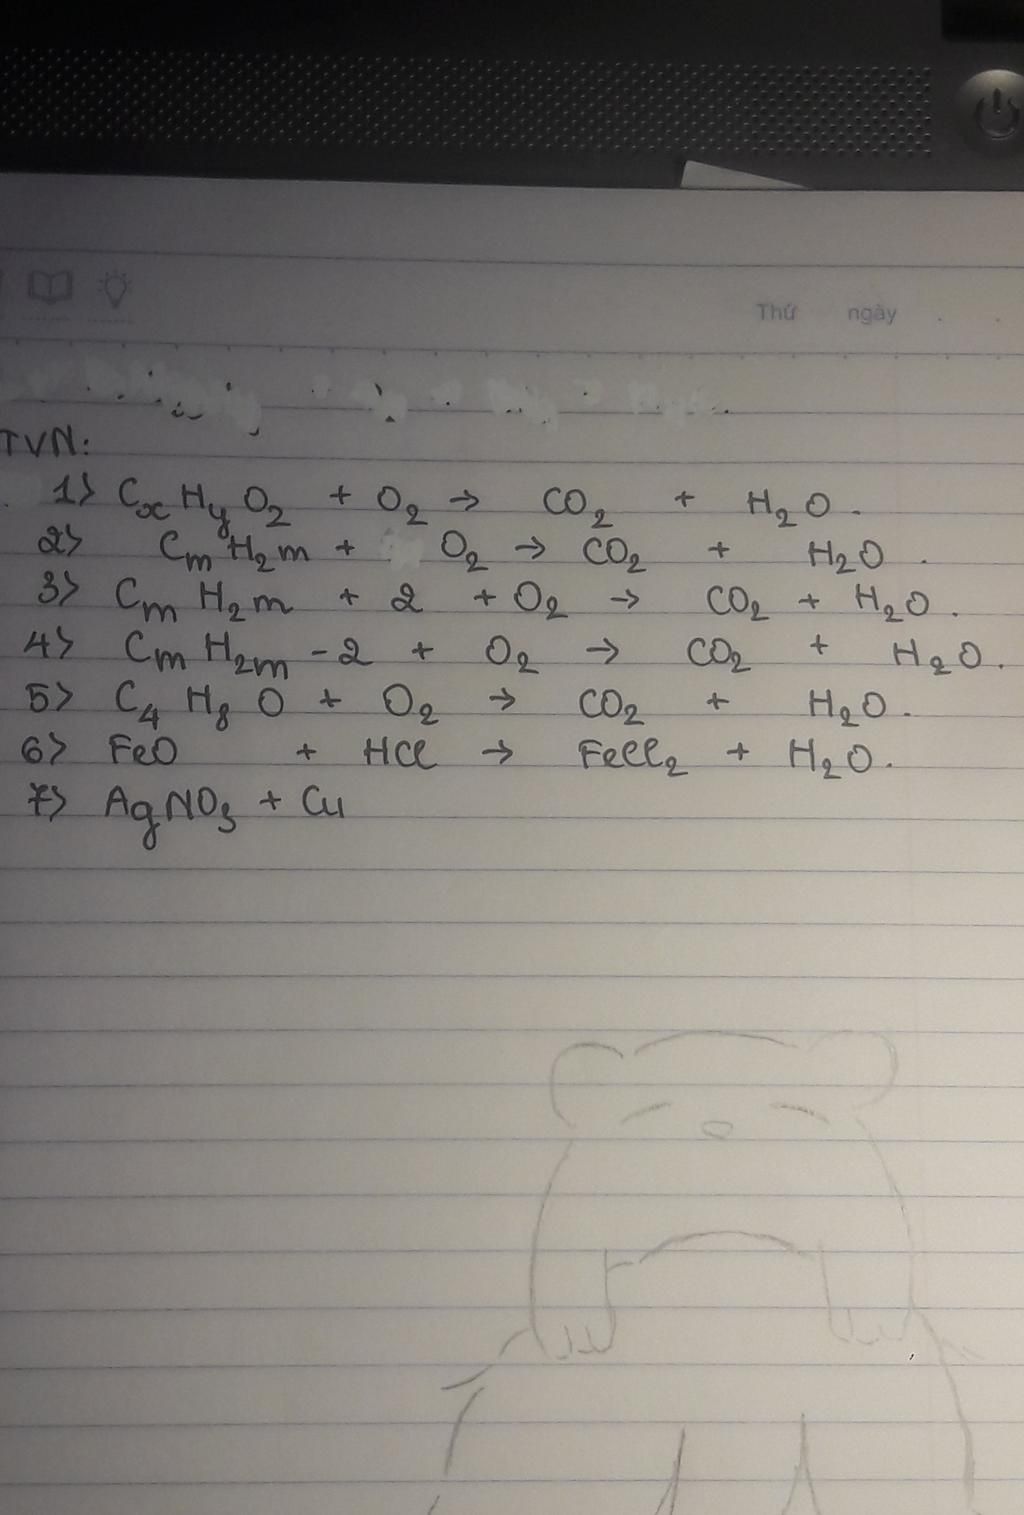 Thứ ngày
TVN:
1> CxHyO2 + O2 → CO2 + H2O.
2> CmH2m + O2 → CO2 + H2O.
3> CmH2m + 2 + O2 → CO2 + H2O.
4> CmH2m - 2 + O2 → CO2 + H2O.
5> C4H8O + O2 → CO2 + H2O.
6> FeO + HCl → FeCl2 + H2O.
7> AgNO3 + Cu